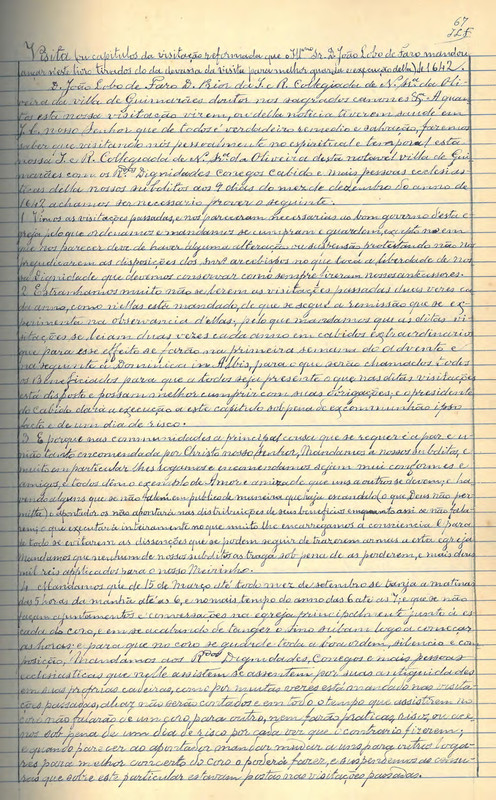 67
Visita (ou capitulos da visitação reformada que o Illmo Sr. D. João Lobo de Faro mandou
lançar neste livro tirados do da devassa da visita para melhor guarda e execução della) de 1642.
D. João Lobo de Faro D. Prior da I. e R. Collegiada de N. Snra. da Oli-
veira da villa de Guimarães doutor nos sagrados canones &. A quan-
tos esta nossa visitação virem, ou della noticia tiverem saude em
J. C. nosso Senhor que de todos é verdadeiro remedio e salvação, fazemos
saber que visitando nós pessoalmente no espiritual e temporal esta
nossa I. e R. Collegiada de N. Snra. da Oliveira desta notavel villa de Gui-
marães com os Rdos Dignidades conegos cabido e mais pessoas ecclesias-
ticas della nossos subditos aos 9 dias do mez de dezembro do anno de
1642 achamos ser necessario prover o seguinte.
1 Vimos as visitações passadas, e nos pareceram necessarias ao bom governo desta e-
greja pelo que ordenamos e mandamos se cumpram e guardem, excepto no em
que nos parecer deve de haver alguma alteração ou suspensão protestando não nos
prejudicarem as disposições dos snrs arcebispos no que toca á liberdade de nos-
sa Dignidade que devemos conservar como sempre fizeram nossos antecessores.
2 Estranhamos muito não se lerem as visitações passadas duas vezes ca-
da anno, como n'ellas está mandado, de que se segue a remissão que se ex-
perimenta na observancia d'ellas; pelo que mandamos que as ditas vi-
sitações se leiam duas vezes cada anno em cabidos extraordinarios
que para esse effeito se farão na primeira semana do Advento e
na seguinte á Dominica in Albis, para o que serão chamados todos
os Beneficiados para que a todos seja presente o que nas ditas visitações
está disposto e possam melhor cumprir com suas obrigações, e o presidente
do cabido dará a execução a este capitulo sob pena de excommunhão ipso
facto e de um dia de risco.
3 E porque nas communidades a principal cousa que se requer é a paz e u-
nião tanto encomendada por Christo nosso Senhor, Mandamos a nossos subditos, e
muito em particular lhes rogamos e encomendamos sejam mui conformes e
amigos, e todos dêm o exemplo de amor e amizade que uns a outros se devem; e ha-
vendo alguns que se não fallem em publico de maneira que haja escandalo (o que Deus não per-
mitta) o apontador os não apontará nas distribuições de seus beneficios emquanto assi se não falla-
rem; o que executará inteiramente no que muito lhe encarregamos a consciencia. E para
de todo se evitarem as dissenções que se podem seguir de trazerem armas a esta egreja
Mandamos que nenhum de nossos subditos as traga sob pena de as perderem, e mais dous
mil reis applicados para o nosso Meirinho.
4 Mandamos que de 15 de Março até todo mez de setembro se tanja a matinas
das 5 horas da manhã até as 6, e no mais tempo do anno das 6 até as 7, e que se não
façam ajuntamentos e conversações na egreja principalmente junto á es-
cada do coro, e em se acabando de tanger o sino subam logo a começar
as horas; e para que no coro se guarde toda a boa ordem, silencio e com-
posição, Mandamos aos Rdos Dignidades, Conegos e mais pessoas
ecclesiasticas que nelle assistem se assentem por suas antiguidades
em suas proprias cadeiras, como por muitas vezes está mandado nas visita-
ções passadas, aliaz não serão contados em todo o tempo que assistirem no
coro não falarão de um coro para outro, nem farão praticas, risos, ou ace-
nos sob pena de um dia de risco por cada vez que o contrario fizerem;
e quando parecer ao apontador mandar mudar a uns para outros loga-
res para melhor concerto do coro o poderá fazer, e suspendemos as censu-
ras que sobre este particular estavam postas nas visitações passadas.